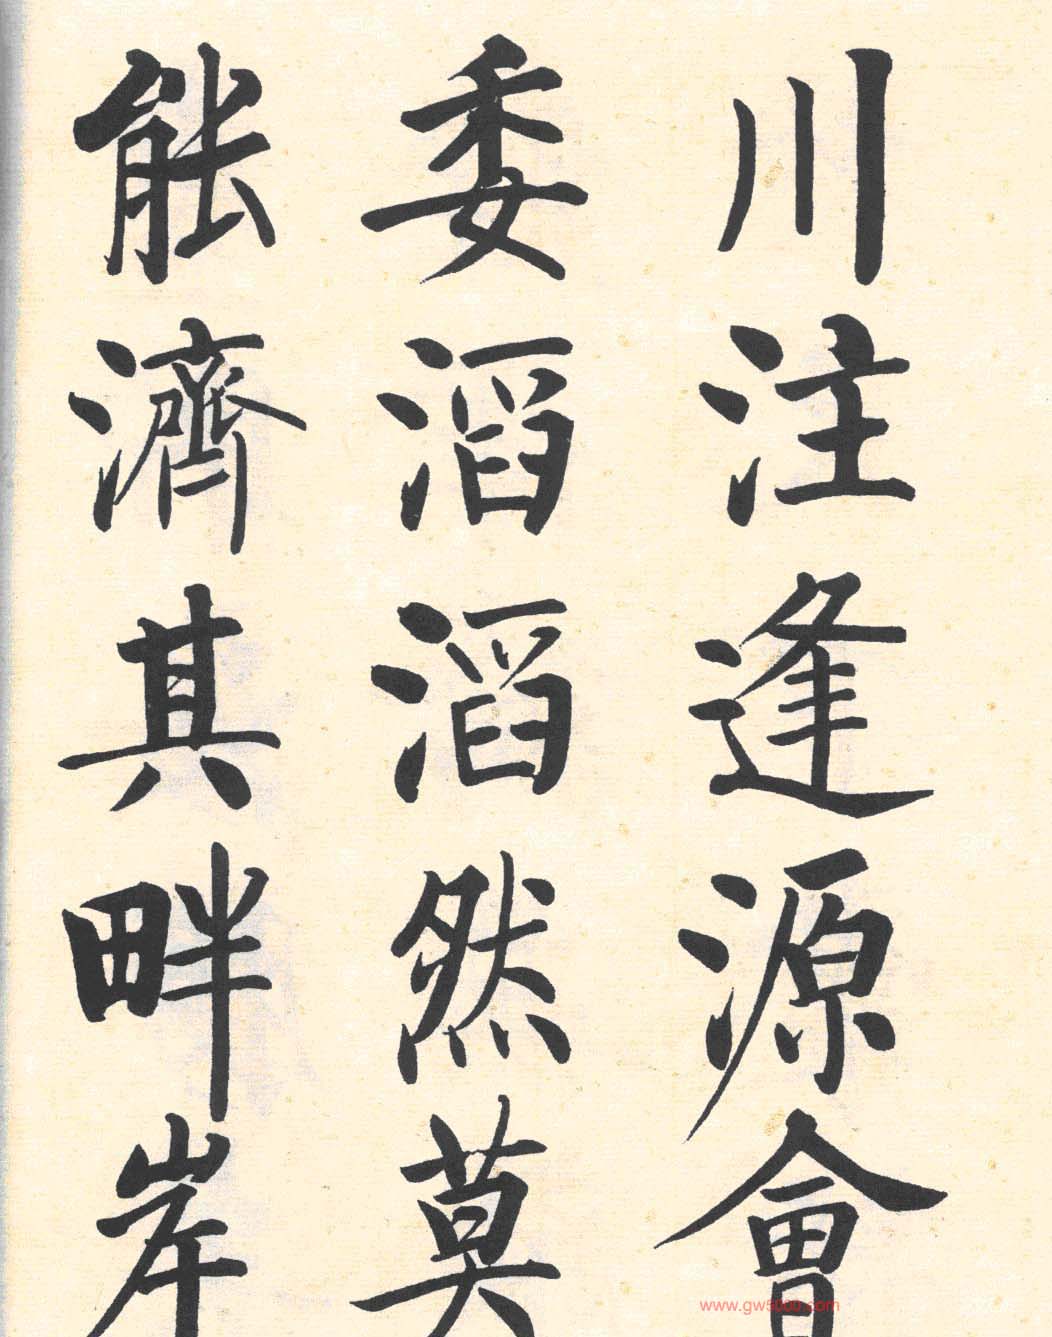 川注逢源會
委滔滔然莫
能濟其畔岸
www.gw5000.com